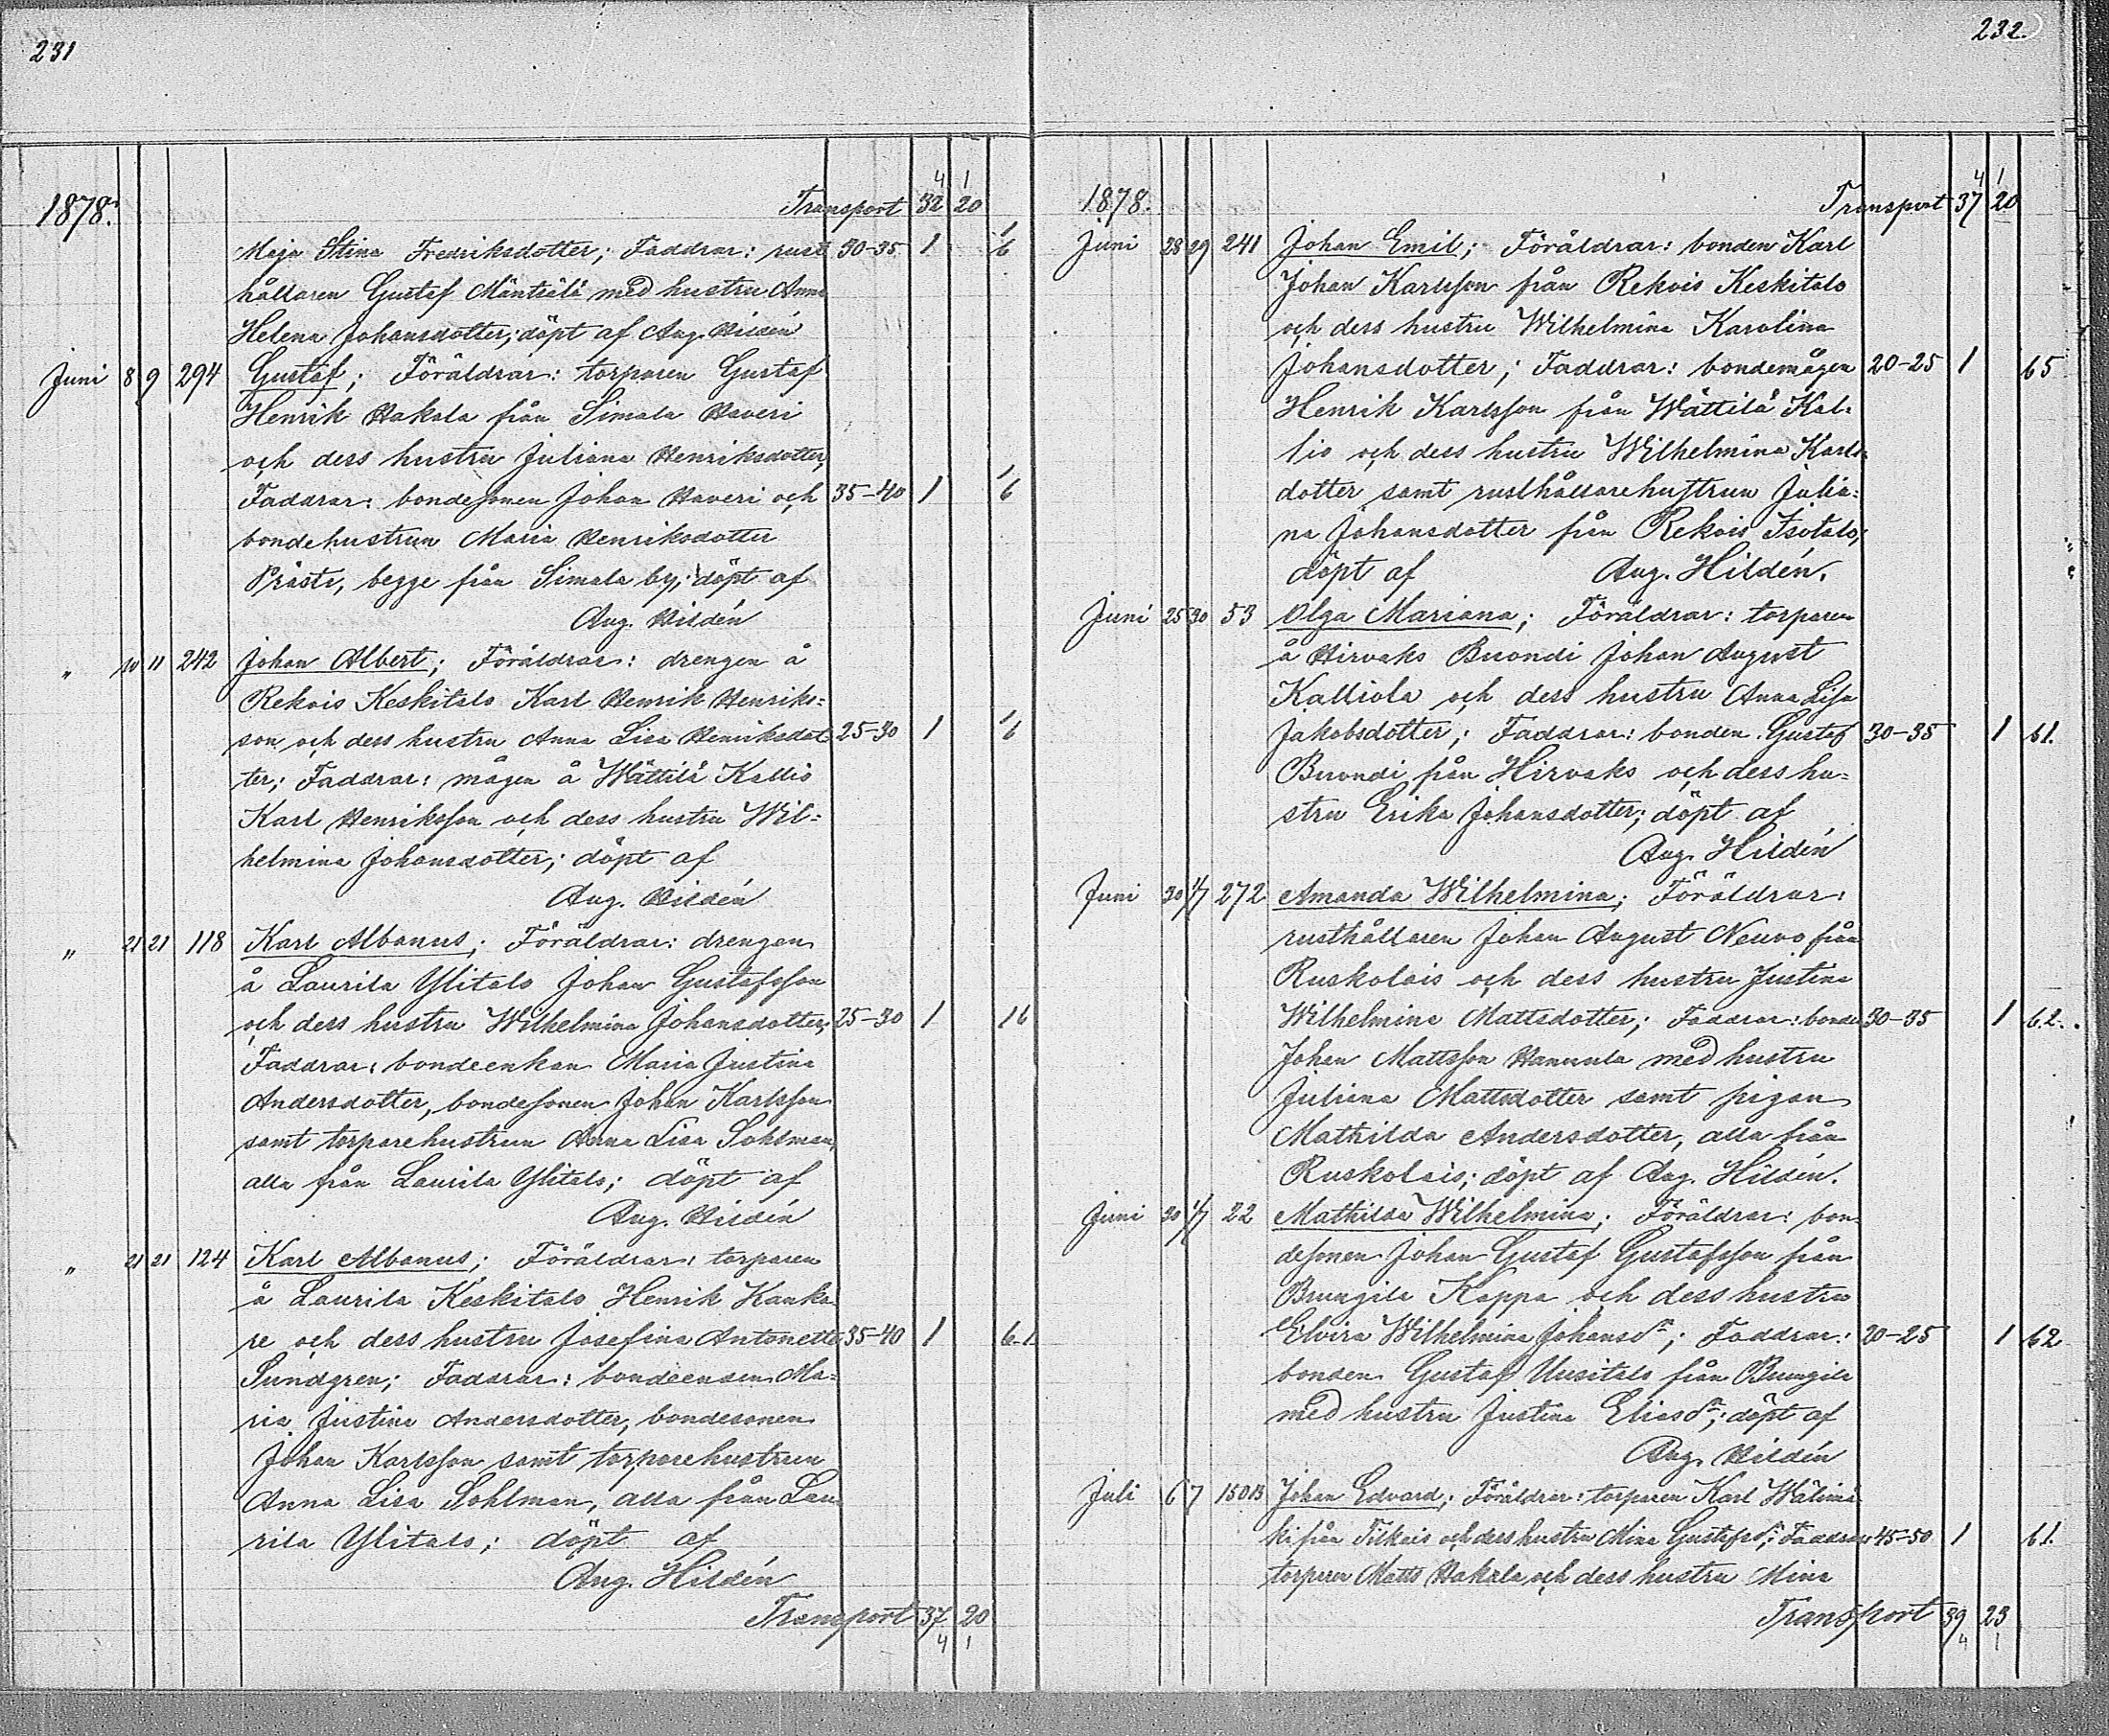 231
4 1
1878. Transport 32 20
Maja Stina Fredriksdotter; Faddrar: rust 30-35 1 1/6
hållaren Gustaf Mäntsälä med hustru Anna
Helena Johansdotter; döpt af Aug. Hildén
Juni 8 9 294 Gustaf; Föräldrar: torparen Gustaf
Henrik Hakala från Simala Haveri
och dess hustru Juliana Henriksdotter,
Faddrar: bondesonen Johan Haveri och 35-40 1 1/6
bondehustrun Maria Henriksdotter
Prästi, begge från Simala by; döpt af
Aug. Hildén
„ 10 11 242 Johan Albert; Föräldrar: drengen å
Rekois Keskitalo Karl Henrik Henriks:
son och dess hustru Anna Lisa Henriksdot 25-30 1 1/6
ter; Faddrar: mågen å Wättilä Kallio
Karl Henriksson och dess hustru Wil:
helmina Johansdotter; döpt af
Aug. Hildén
„ 21 21 118 Karl Albanus; Föräldrar: drengen
å Laurila Ylitalo Johan Gustafsson
och dess hustru Wilhelmina Johansdotter; 25-30 1 16
Faddrar: bondeenkan Maria Justina
Andersdotter, bondesonen Johan Karlsson
samt torparehustrun Anna Lisa Sohlman,
alla från Laurila Ylitalo; döpt af
Aug. Hildén
„ 21 21 124 Karl Albanus; Föräldrar: torparen
å Laurila Keskitalo Henrik Kanka
re och dess hustru Josefina Antonetta 35-40 1 6.1.
Sundgren; Faddrar: bondeenkan Ma:
ria Justina Andersdotter, bondesonen
Johan Karlsson samt torparehustrun
Anna Lisa Sohlman, alla från Lau
rila Ylitalo; döpt af
Aug. Hildén
Transport 37 20
4 1
232.
4 1
1878. Transport 37 20
Juni 28 29 241 Johan Emil; Föräldrar: bonden Karl
Johan Karlsson från Rekois Keskitalo
och dess hustru Wilhelmina Karolina
Johansdotter; Faddrar: bondemågen 20-25 1 65
Henrik Karlsson från Wättilä Kal:
lio och dess hustru Wilhelmina Karls
dotter samt rusthållarehustrun Julia:
na Johansdotter från Rekois Isotalo;
döpt af Aug. Hildén.
Juni 25 30 53 Olga Mariana; Föräldrar: torparen
å Hirvaks Buondi Johan August
Kalliola och dess hustru Anna Lisa
Jakobsdotter; Faddrar: bonden Gustaf 30-35 1 61.
Buondi från Hirvaks och dess hu:
stru Erika Johansdotter; döpt af
Aug. Hildén
Juni 30 1/7 272 Amanda Wilhelmina; Föräldrar:
rusthållaren Johan August Neuvo från
Ruskolais och dess hustru Justina
Wilhelmina Mattsdotter; Faddrar: bonden 30-35 1 6.2.
Johan Mattsson Hannula med hustru
Juliana Mattsdotter samt pigan
Mathilda Andersdotter, alla från
Ruskolais; döpt af Aug. Hildén.
Juni 30 1/7 22 Mathilda Wilhelmina; Föräldrar: bon
desonen Johan Gustaf Gustafsson från
Brungila Kappa och dess hustru
Elvira Wilhelmina Johansdr; Faddrar: 20-25 1 62
bonden Gustaf Uusitalo från Brungila
med hustru Justina Eliasdr; döpt af
Aug. Hildén
Juli 6 7 Johan Edvard; Föräldrar: torparen Karl Wälimä
ki från Tilkais och dess hustru Mina Gustafsdr; Faddrar 45-50 1 61.
torparen Matts Hakala och dess hustru Mina
Transport 39 23
4 1